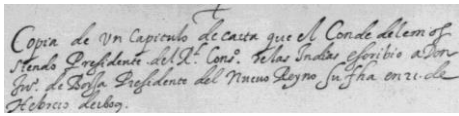 Copia de un capitulo de carta que el Conde de lemos
siendo Presidente del Rl. Conso. de las Indias escribio a Don
Juo. de Borja Presidente del Nueuo Reyno su fha en 21. de
Hebrero de 1609.